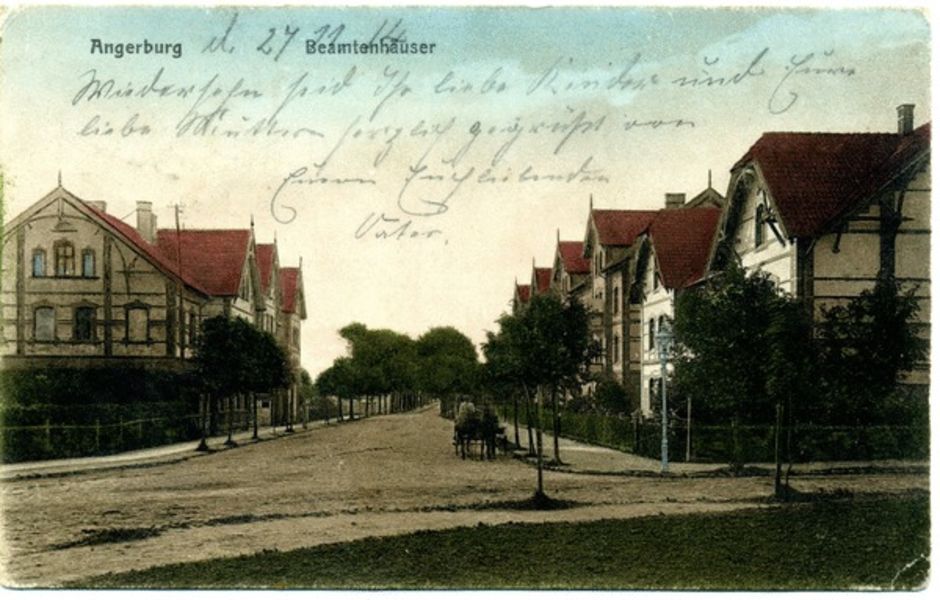 Angerburg d. 27 11 14 Beamtenhäuser
Wiedersehn seid Ihr liebe Kinder und Eure
liebe Mutter herzlich gegrüßt von
Euren Euch liebenden
Vater.